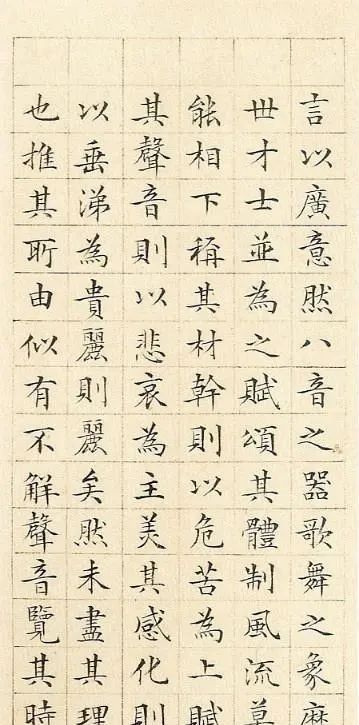 言以廣意然八音之器歌舞之象
世才士並為之賦頌其體制風流莫
能相下稱其材幹則以危苦為上賦
其聲音則以悲哀為主美其感化則
以垂涕為貴麗則麗矣然未盡其理
也推其所由似有不解聲音覽其時